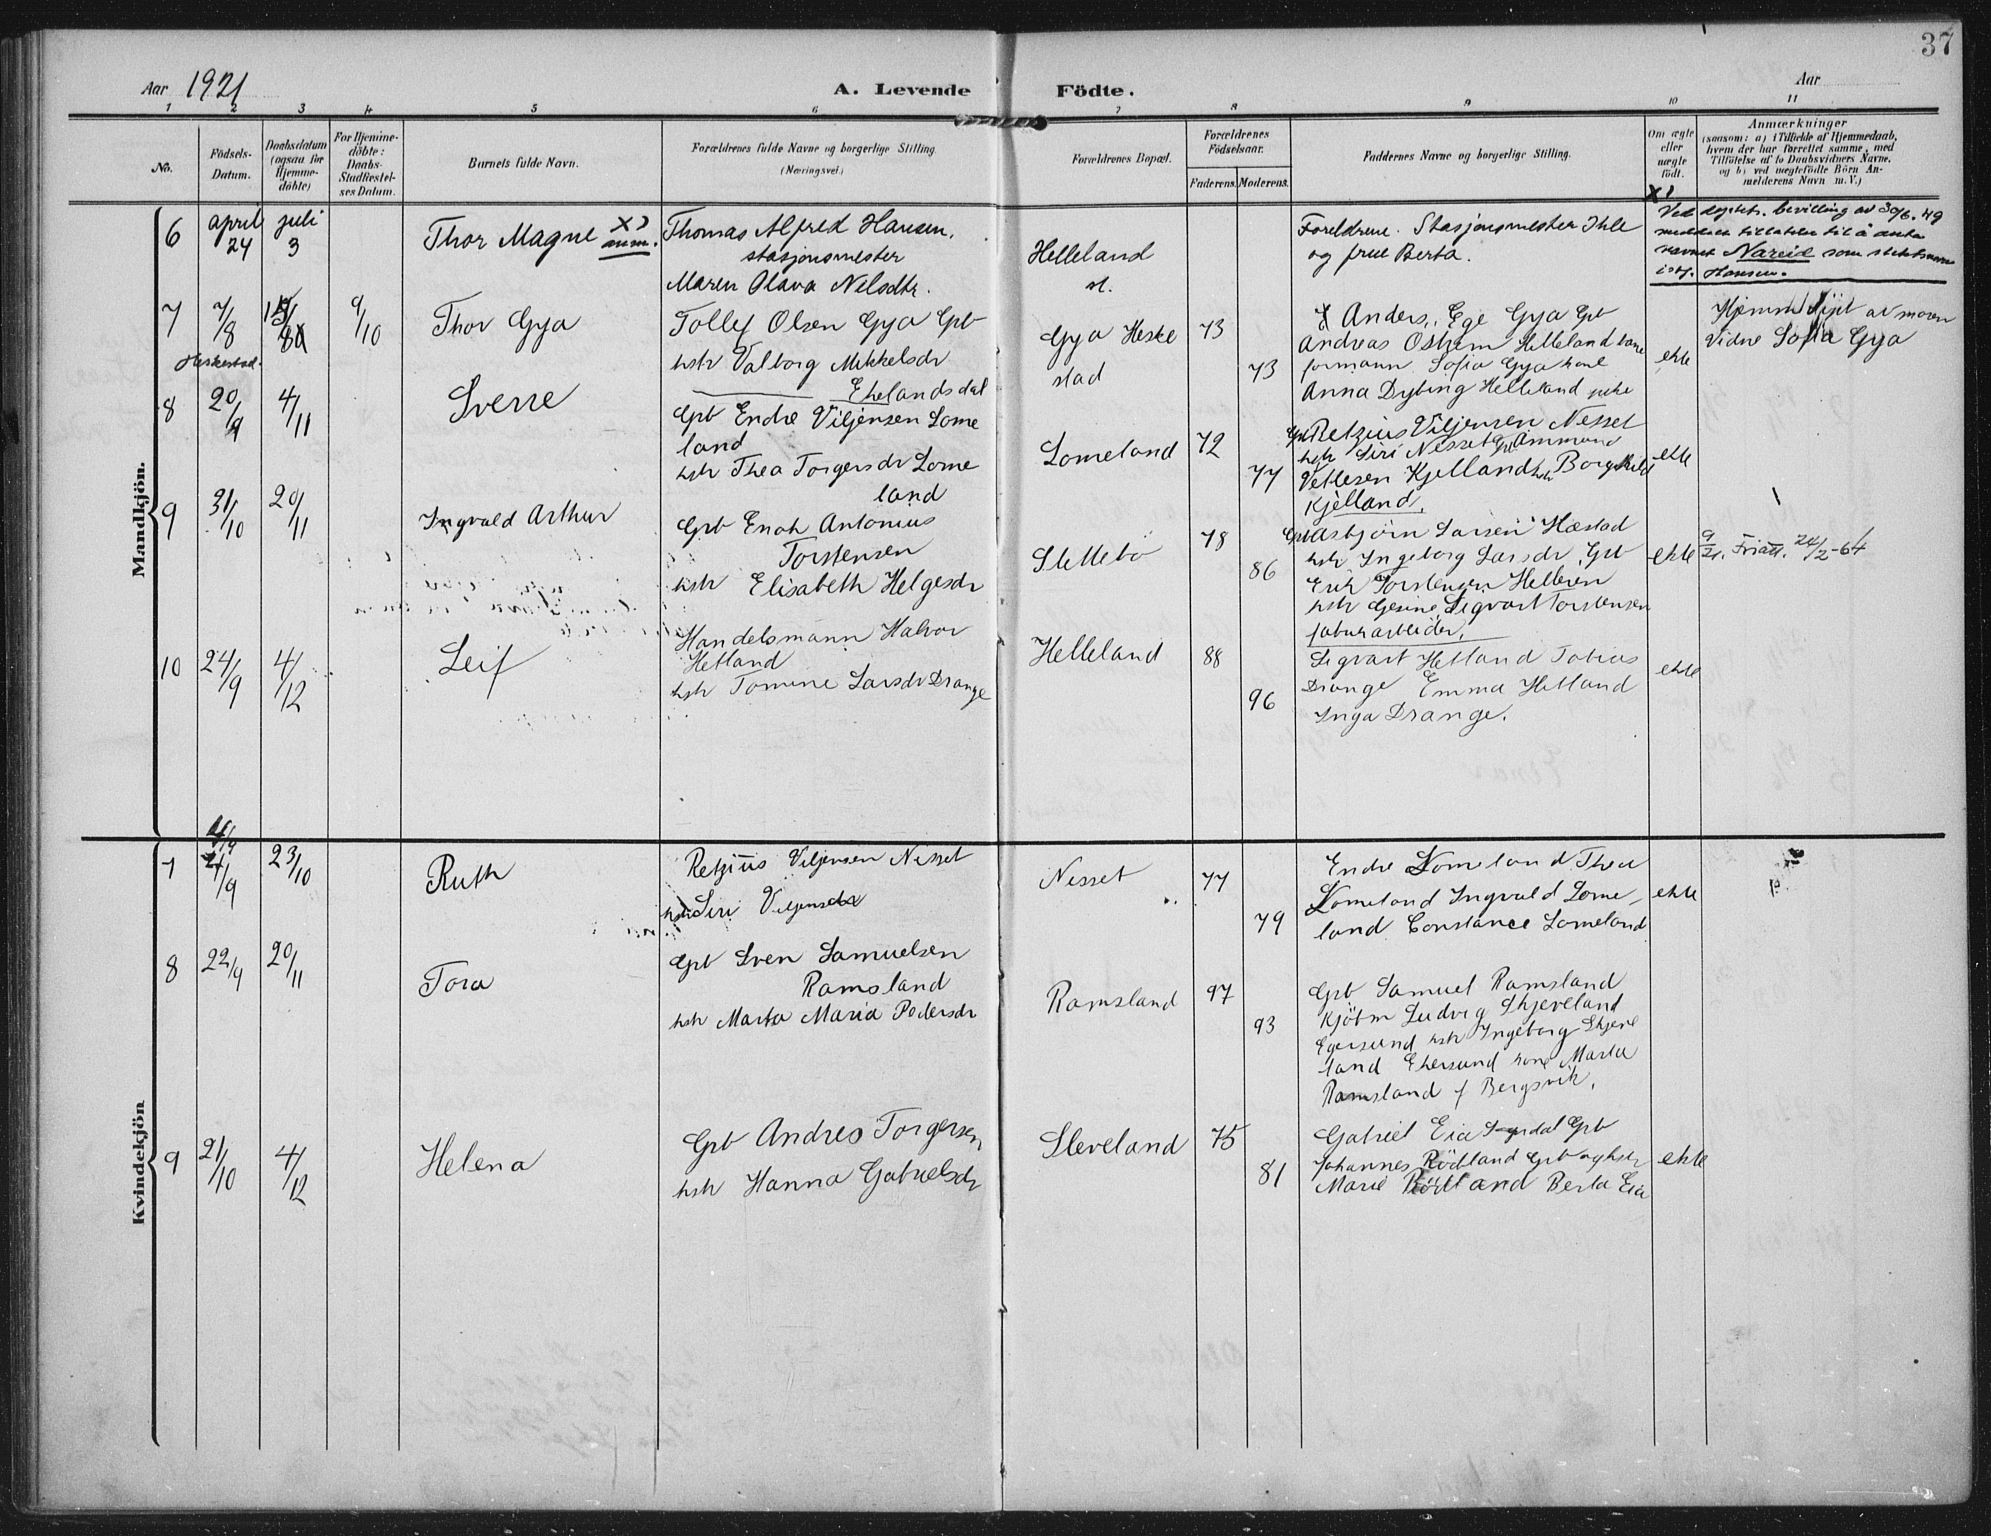 37
Aar 1921
A. Levende Födte.
Aar
1 2 3 4 5 6 7 8 9 10 11
No.
Födsels-
Datum.
Daabsdatum
(ogsaa for
Hjemme-
döbte)
For Hjemme-
döbte:
Daabs-
Stadfæstel-
ses Datum.
Barnets fulde Navn.
Forældrenes fulde Navne og borgerlige Stilling
(Næringsvei.)
Forældrenes Bopæl.
Forældrenes
Födselsaar.
Faderens. Moderens.
Faddernes Navne og borgerlige Stilling.
Om ægte
eller
uægte
födt.
Anmærkninger
(saasom: a) i Tilfælde af Hjemmedaab,
hvem der har forrettet samme, med
Tilföielse af to Daabsvidners Navne,
og b) ved uægtefödte Börn An-
melderens Navn m. V.)
Mandkjön.
6
april
24
juli
3
Thor Magne x) anm.
Thomas Alfred Hansen,
stasjonsmester
Maren Olava Nilsdtr.
Helleland
st.
Foreldrene. Stasjonsmester Ihle
og frue Berta.
x)
Ved dept. bevilling av 30/6.49
meddelt tillatelse til å anta
navnet Nareid som slektsnavn
i st.f. Hansen.
7
7/8
Heskestad.
9/10
Thor Gya
Tollef Olsen Gya Gpb
hstr Valborg Mikkelsdr
Ehelandsdal
Gya Heske
stad
73
73
Anders Ege Gya Gpb
Andreas Ostrem Helleland bane
formann Sofia Gya kone
Anna Dybing Helleland pike
ekte
av moren
Vidne Sofia Gya
8
20/9
4/11
Sverre
Gpb Endre Viljensen Lome
land
hstr Thea Torgersdr Lome
land
Lomeland
72
77
Gpb Retzius Viljensen Nesset
hstr Siri Nesset Gpb Ammund
Vetlesen Kjelland hstr Borghild
Kjelland.
ekte
9
31/10
20/11
Ingvald Arthur
Gpb Enok Antonius
Torstensen
hstr Elisabeth Helgesdr
Slettebö
78
86
Gpb Asbjörn Larsen Hæstad
hstr Ingeborg Larsdr, Gpb
Erik Torstensen Helleren
hstr Gesine Sigvart Torstensen
faburarbeider.
ekte
9/21. Friatt. 24/2-64
10
24/9
4/12
Leif
Handelsmann Halvor
Hetland
hstr Tomine Larsdr Drange
Helleland
88
96
Sigvart Hetland Tobias
Drange Emma Hetland
Inga Drange.
ekte
Kvindekjön
7
23/10
Ruth
Retzius Viljensen Nesset
hstr Siri Viljensdr
Nesset
77
79
Endre Lomeland Thea
Lomeland Ingvald Lome-
land Constance Lomeland
ekte
8
22/9
20/11
Tora
Gpb Sven Samuelsen
Ramsland
hstr Marta Maria Pedersdr
Ramsland
97
93
Gpb Samuel Ramsland
Kjöbm Ludvig Skjeveland
Egersund hstr Ingeborg Skjeve
land Ekersund kone Marta
Ramsland f Bergsvik.
9
21/10
4/12
Helena
Gpb Andres Torgersen
hstr Hanna Gabrielsdr
Sleveland
75
81
Gabriel Eia Gpb
Johannes Rödland Gpb og hstr
Marie Rödland Berta Eia
ekte